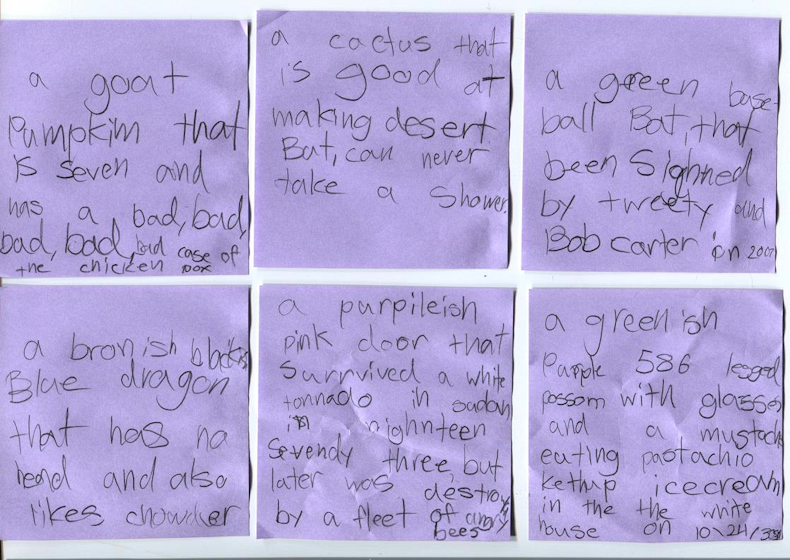 a goat
Pumpkim that
is seven and
has a bad, bad,
bad, bad, bad case of
the chicken pox
a cactus that
is good at
making desert
But, can never
take a shower.
a green base-
ball Bat, that
been Sighned
by tweety and
Bob carter on 2001
a bronish blackish
Blue dragon
that has no
head and also
likes chowder
a purpileish
pink door that
Survived a white
tonnado in sudan
in nighnteen
Sevendy three, but
later was destroy
by a fleet of angry
bees
a greenish
Purple 586 legged
possom with glasses
and a mustach
eating pastachio
kethup icecream
in the the white
house on 10\24/